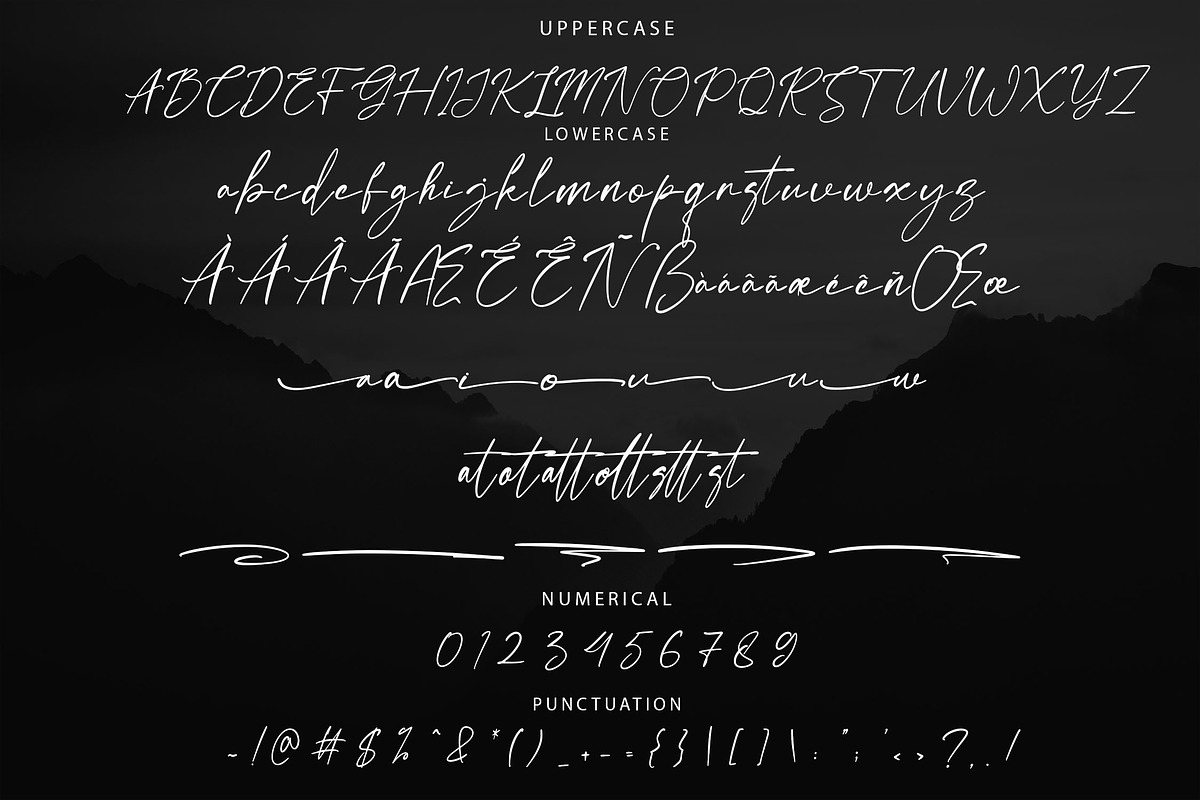 UPPERCASE
ABCDEFGHIJKLMNOPQRSTUVWXYZ
LOWERCASE
abcdefghijklmnopqrstuvwxyz
ÀÁÂÃÆÉÊÑßàáâãæéêñŒœ
aa i o u u w
atotattoltsttst
NUMERICAL
0123456789
PUNCTUATION
~!@#$%^&*()_+-={}|[]\:";'<>?,./